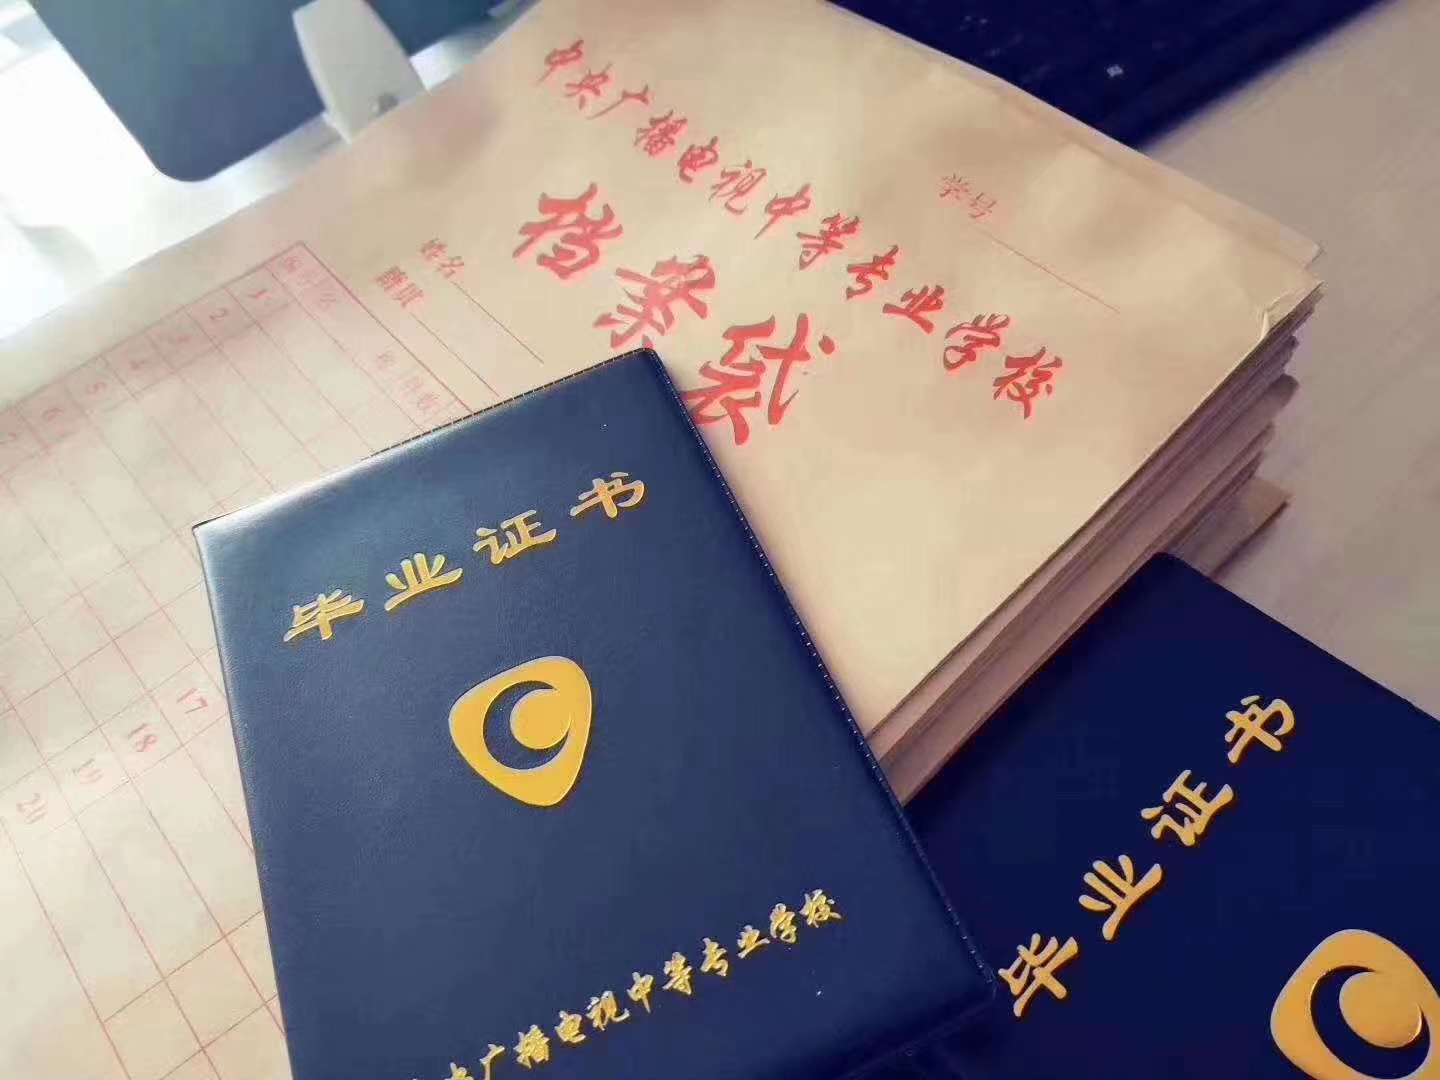 中央广播电视中等专业学校
档案袋
学号
姓名
1
2
3
4
5
6
17
18
19
20
毕业证书
央广播电视中等专业学校
毕业证书